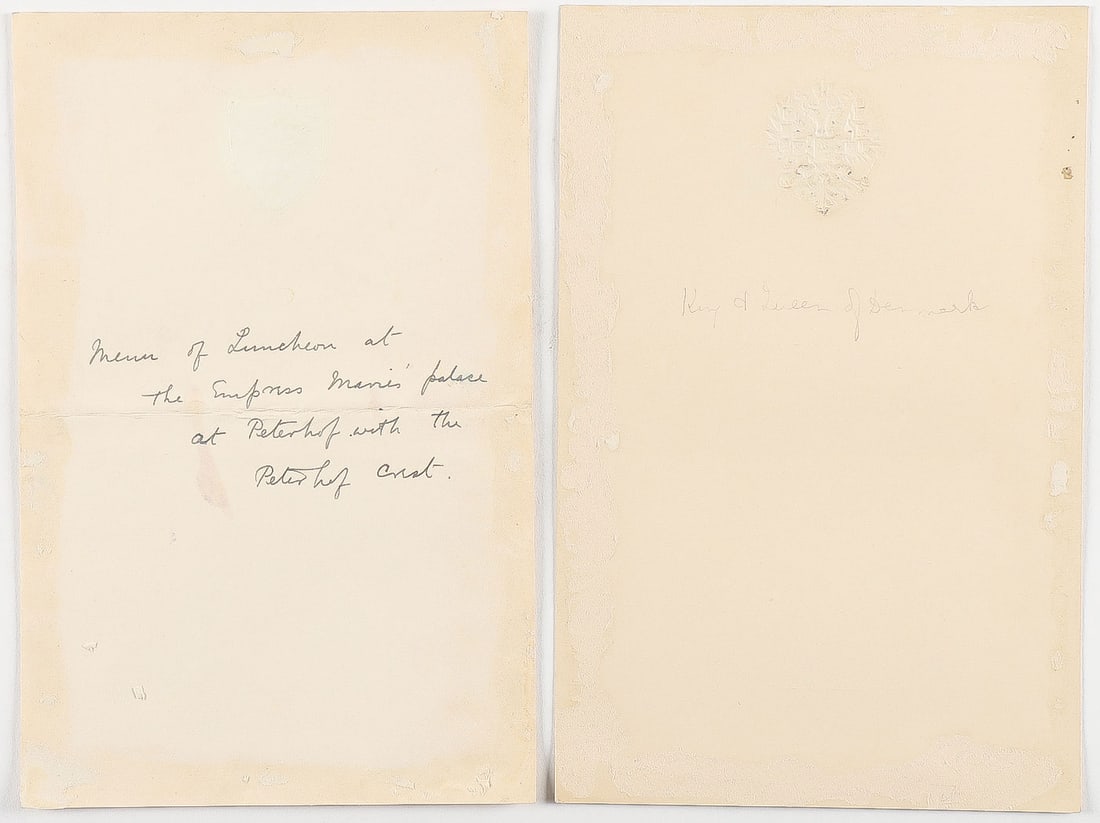 Menu of Luncheon at
the Empress Maries' palace
at Peterhof with the
Peterhof Crest.
King & Queen of Denmark